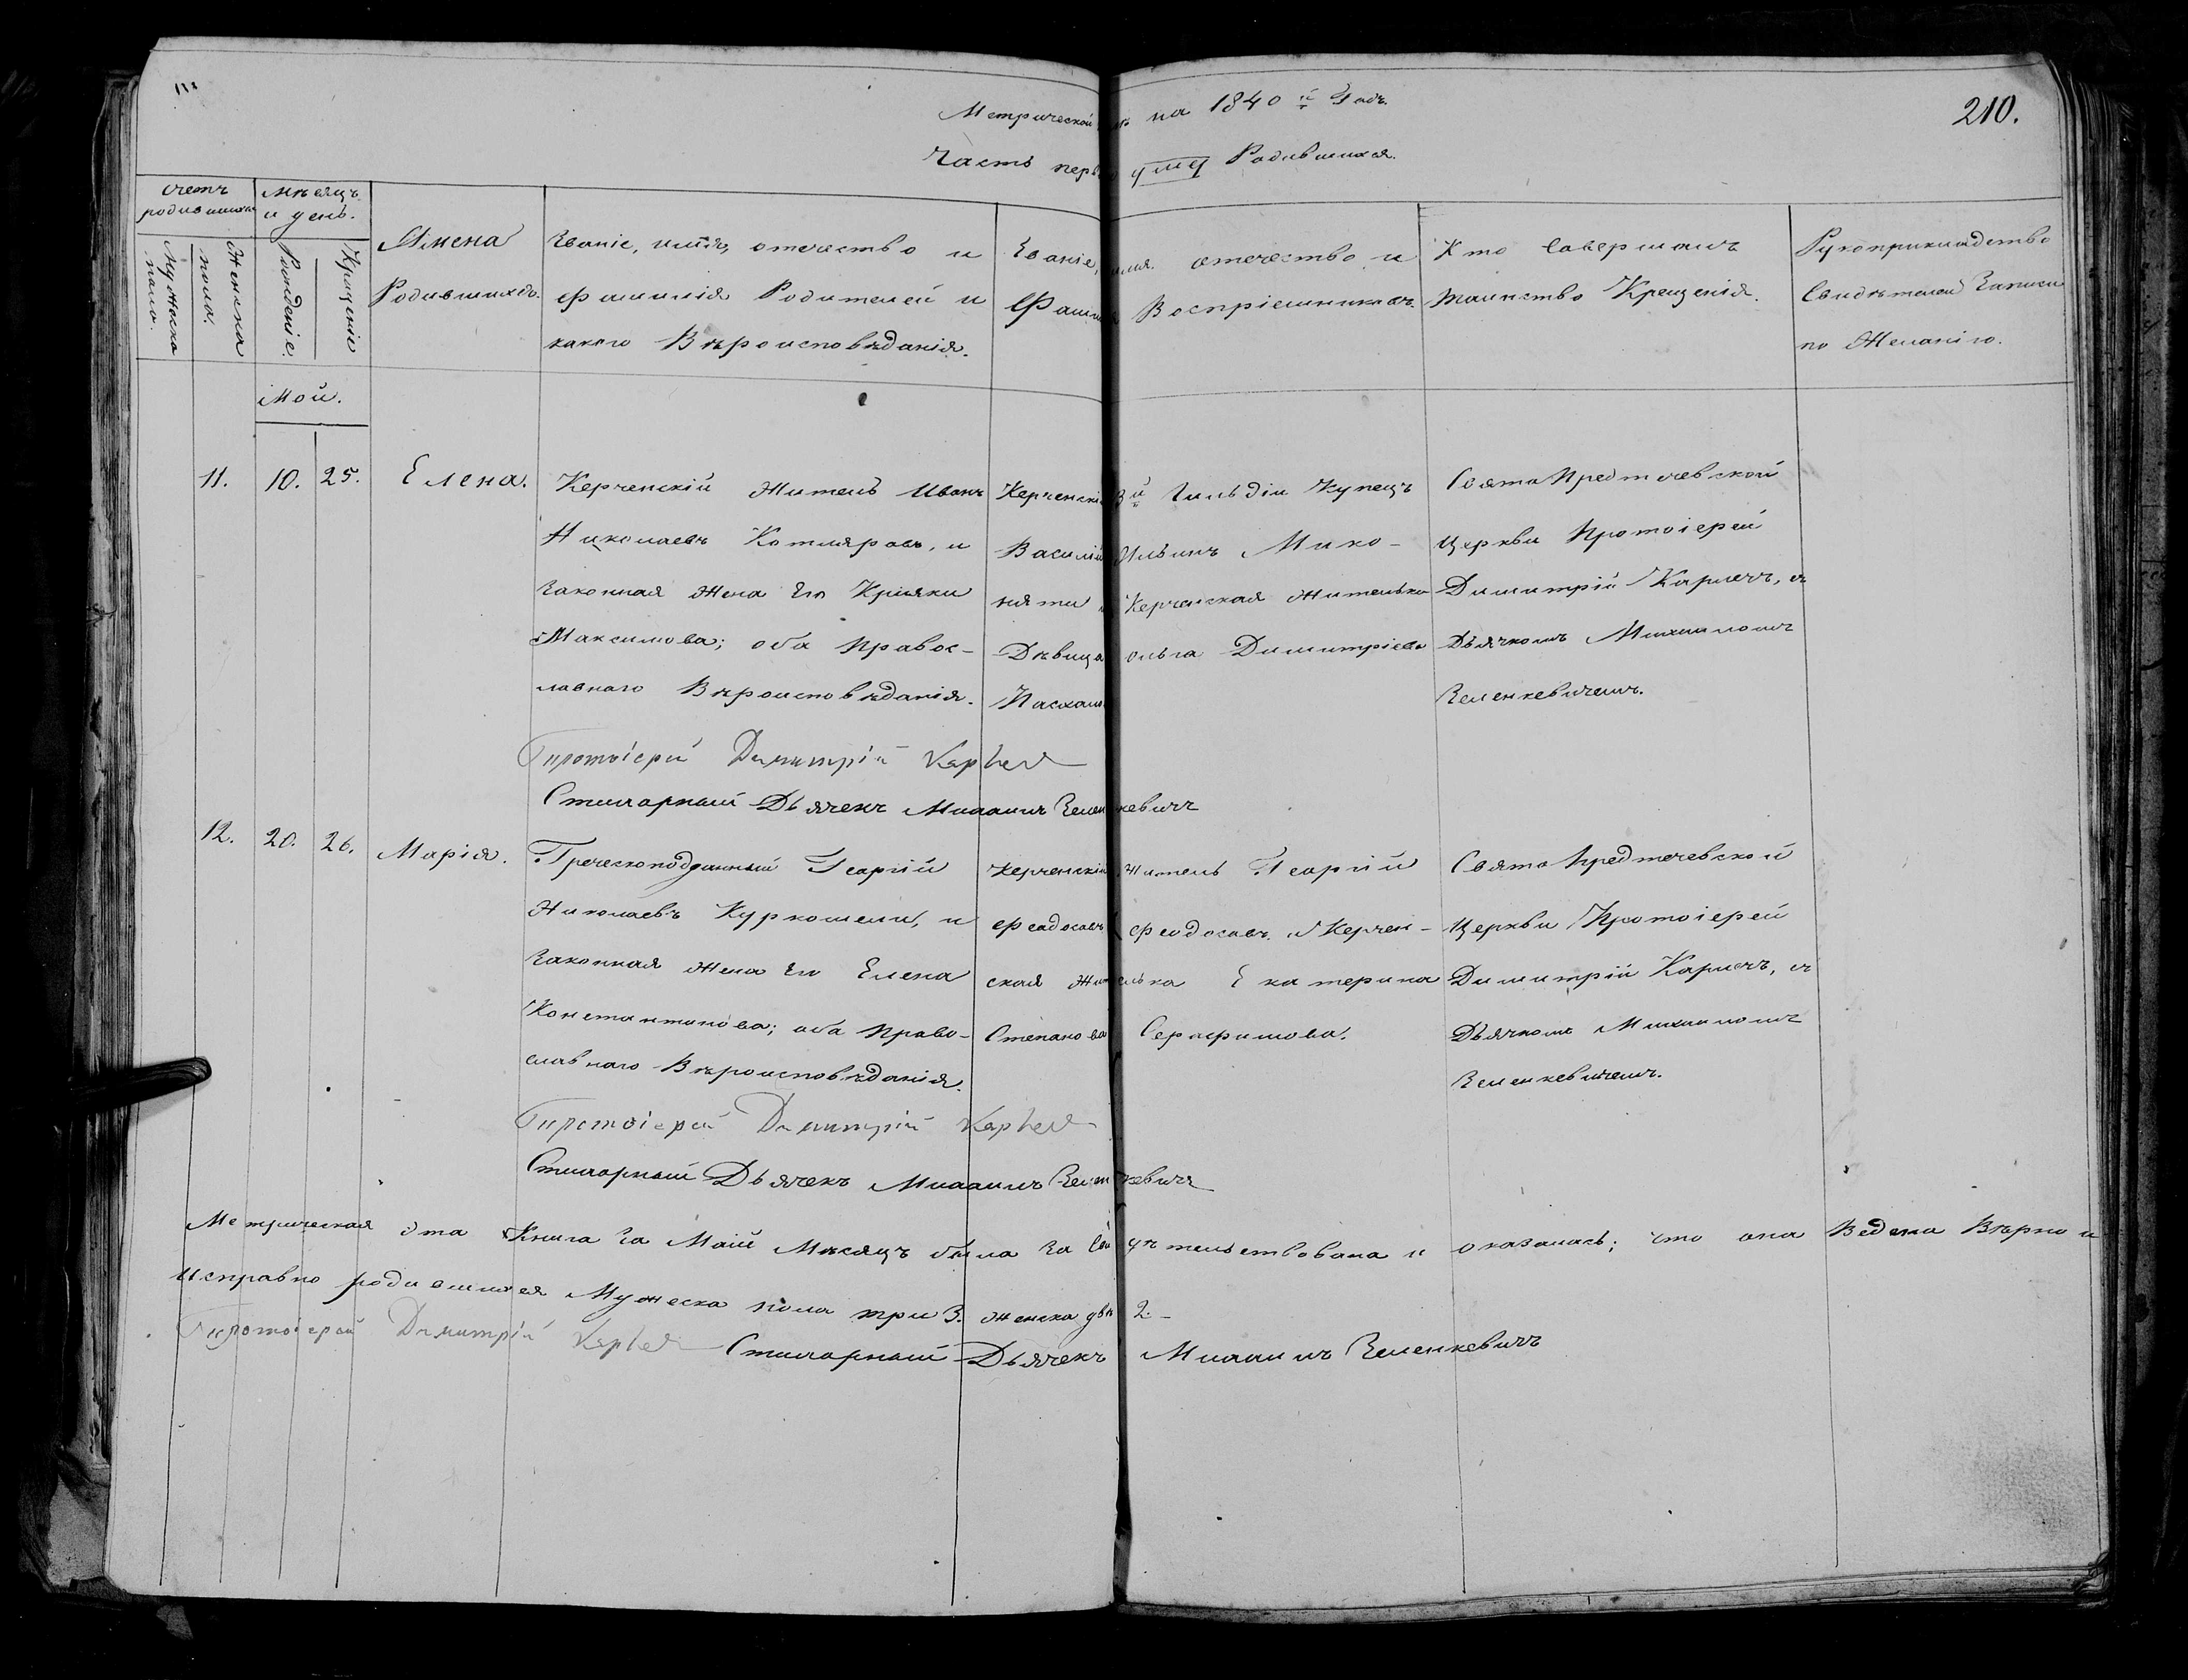 Метрической на 1840й Годъ.
210.
Часть перв о Родившихся.
Счетъ родившихся
Мѣсяцъ и день.
Мужеска пола.
Женска пола.
Рожденіе.
Крещеніе
Имена
Родившихся.
Званіе, имя, отечество и
Фамилія Родителей и
какого Вѣроисповѣданія.
Званіе, имя. отечество и
Фамилія Воспріемниковъ.
Кто Совершалъ
таинство Крещенія.
Рукоприкладство
Свидѣтелей Записи
по Желанію.
Май.
11.
10.
25.
Елена.
Керченскій Житель Иванъ
Николаевъ Котляровъ, и
Законная Жена Его
Максимова; оба Правос-
лавнаго Вѣроисповѣданія.
Керченскій 3й Гильдіи Купецъ
Василій Ильинъ Мико-
няти и Керченская Жителька
Дѣвица Ольга Димитріева
Свято Предтечевской
Церкви Протоіерей
Димитрій Карпечъ, съ
Дьячкомъ Михаиломъ
Зеленкевичемъ.
Протоіерей Димитрій
Стихарный Дьячекъ Михаилъ Зеленкевичъ
12.
20.
26.
Марія.
Греческоподданный Георгій
Николаевъ и
Законная Жена Его Елена
Константинова; оба Право-
славнаго Вѣроисповѣданія.
Керченскій Житель Георгій
Феодосовъ Феодосовъ. и Керчен-
ская Жителька Екатерина
Степанова Серафимова.
Свято Предтечевской
Церкви Протоіерей
Димитрій Карпечъ, съ
Дьячкомъ Михаиломъ
Зеленкевичемъ.
Протоіерей Димитрій
Стихарный Дьячекъ Михаилъ Зеленкевичъ
Метрическая эта Книга За Май Мѣсяцъ была За Свидѣтельствована и оказалась; что она Ведена Вѣрно и
Исправно родившихся Мужеска пола три 3. женска двѣ 2.-
Протоіерей Димитрій Стихарный Дьячекъ Михаилъ Зеленкевичъ